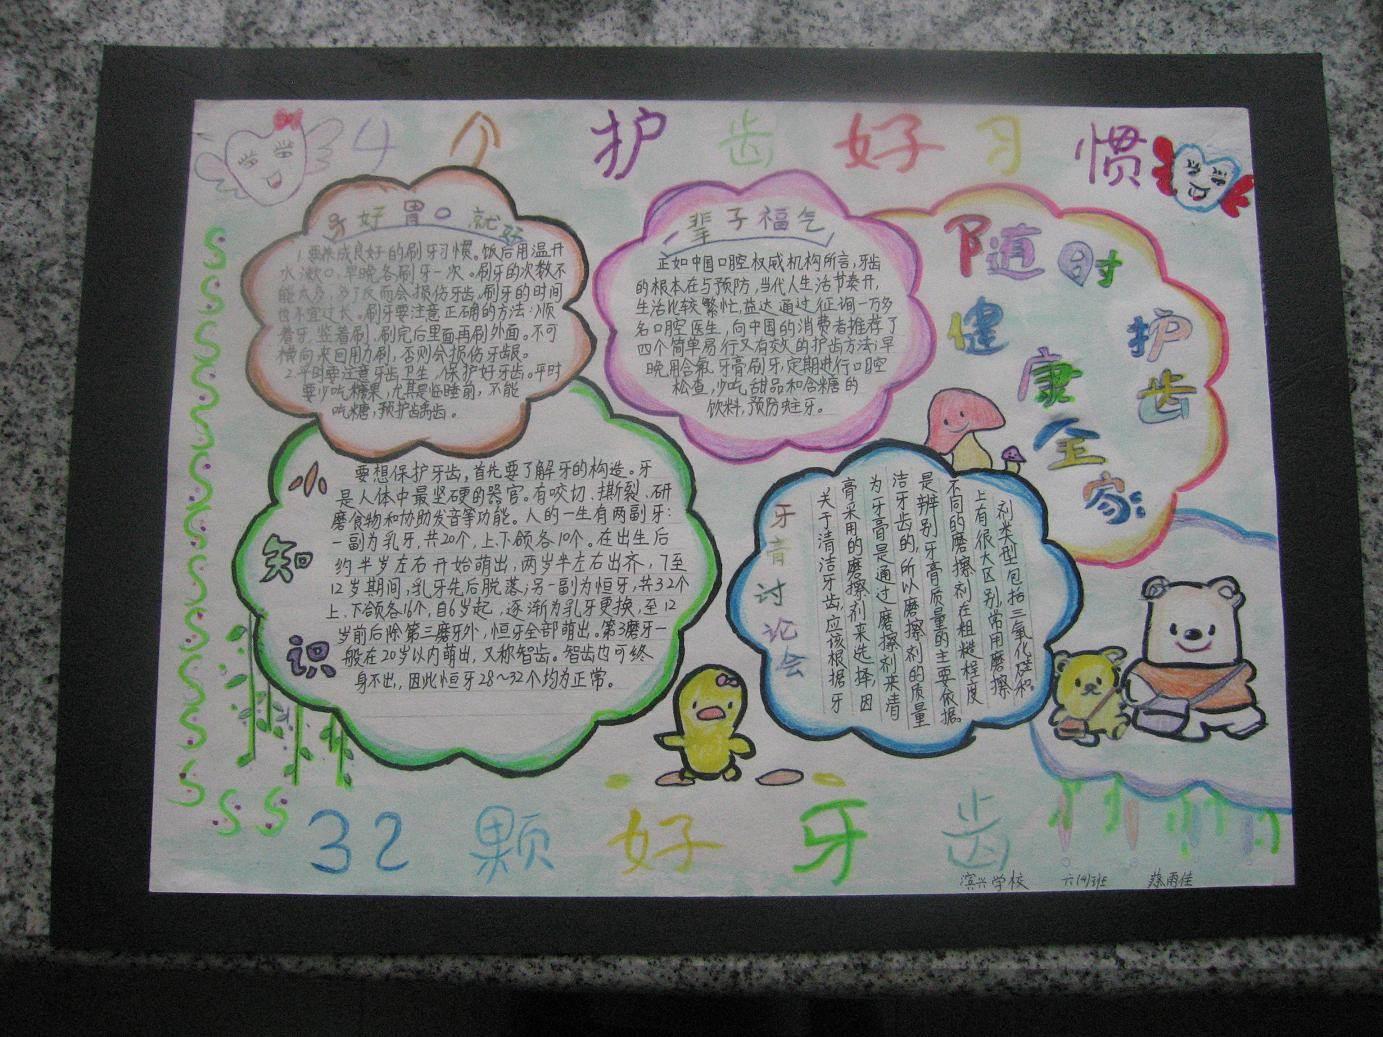 4个护齿好习惯
牙好胃口就好
1.要养成良好的刷牙习惯。饭后用温开
水漱口,早晚各刷牙一次。刷牙的次数不
能太多,多了反而会损伤牙齿。刷牙的时间
也不宜过长。刷牙要注意正确的方法:顺
着牙,竖着刷,刷完后里面再刷外面。不可
横向来回用力刷,否则会损伤牙龈。
2.平时要注意牙齿卫生,保护好牙齿。平时
要少吃糖果,尤其是临睡前,不能
吃糖,预护龋齿。
一辈子福气
正如中国口腔权威机构所言,牙齿
的根本在与预防,当代人生活节奏开,
生活比较繁忙,益达通过征询一万多
名口腔医生,向中国的消费者推荐了
四个简单易行又有效的护齿方法:早
晚用含氟牙膏刷牙,定期进行口腔
检查,少吃甜品和含糖的
饮料,预防蛀牙。
随时
护齿
健康全家
小知识
要想保护牙齿,首先要了解牙的构造。牙
是人体中最坚硬的器官。有咬切、撕裂、研
磨食物和协助发音等功能。人的一生有两副牙:
一副为乳牙,共20个,上、下颌各10个。在出生后
约半岁左右开始萌出,两岁半左右出齐,7至
12岁期间,乳牙先后脱落;另一副为恒牙,共32个
上、下颌各16个,自6岁起,逐渐为乳牙更换,至12
岁前后除第三磨牙外,恒牙全部萌出。第3磨牙一
般在20岁以内萌出,又称智齿。智齿也可终
身不出,因此恒牙28~32个均为正常。
牙膏讨论会
关于清洁牙齿,应该根据牙
膏采用的磨擦剂来选择,因
为牙膏是通过磨擦剂来清
洁牙齿的,所以磨擦剂的质量
是辨别牙膏质量的主要依据。
不同的磨擦剂在粗糙程度
上有很大区别,常用磨擦
剂类型包括三氧化硅和。
32颗好牙齿
滨兴学校 六(4)班 蔡雨佳